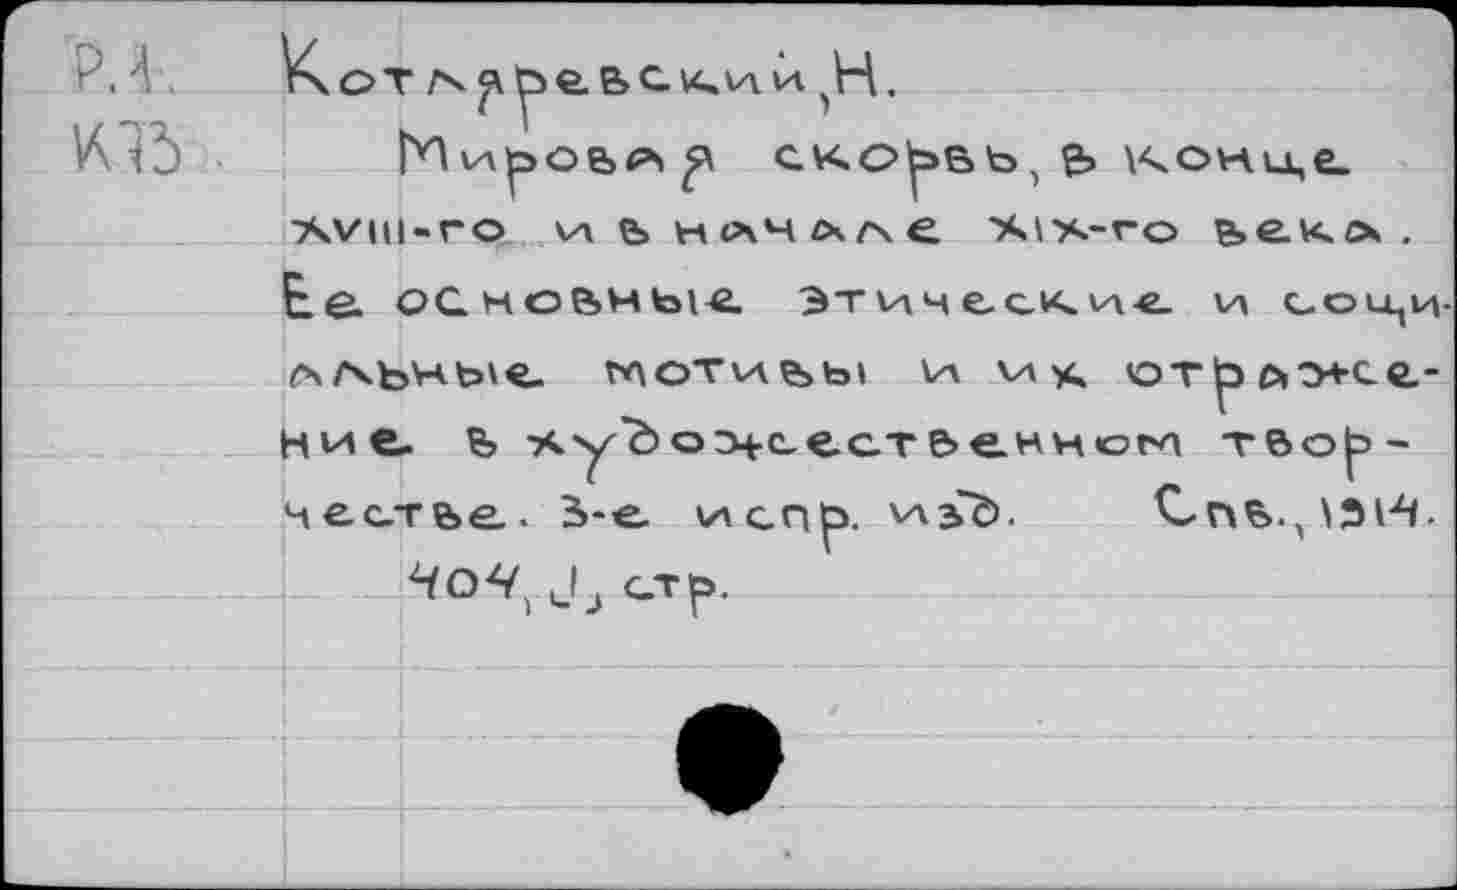 Р.4. Котляревский, Н.
К73. Мировая скорбь, в конце
XVIII-го и в начале XIX-го века.
Ее основные этические и соци-
альные мотивы и их отраже-
ние в художественном твор-
честве. 3-е испр. изд. Спб., 1914.
404, J, стр.